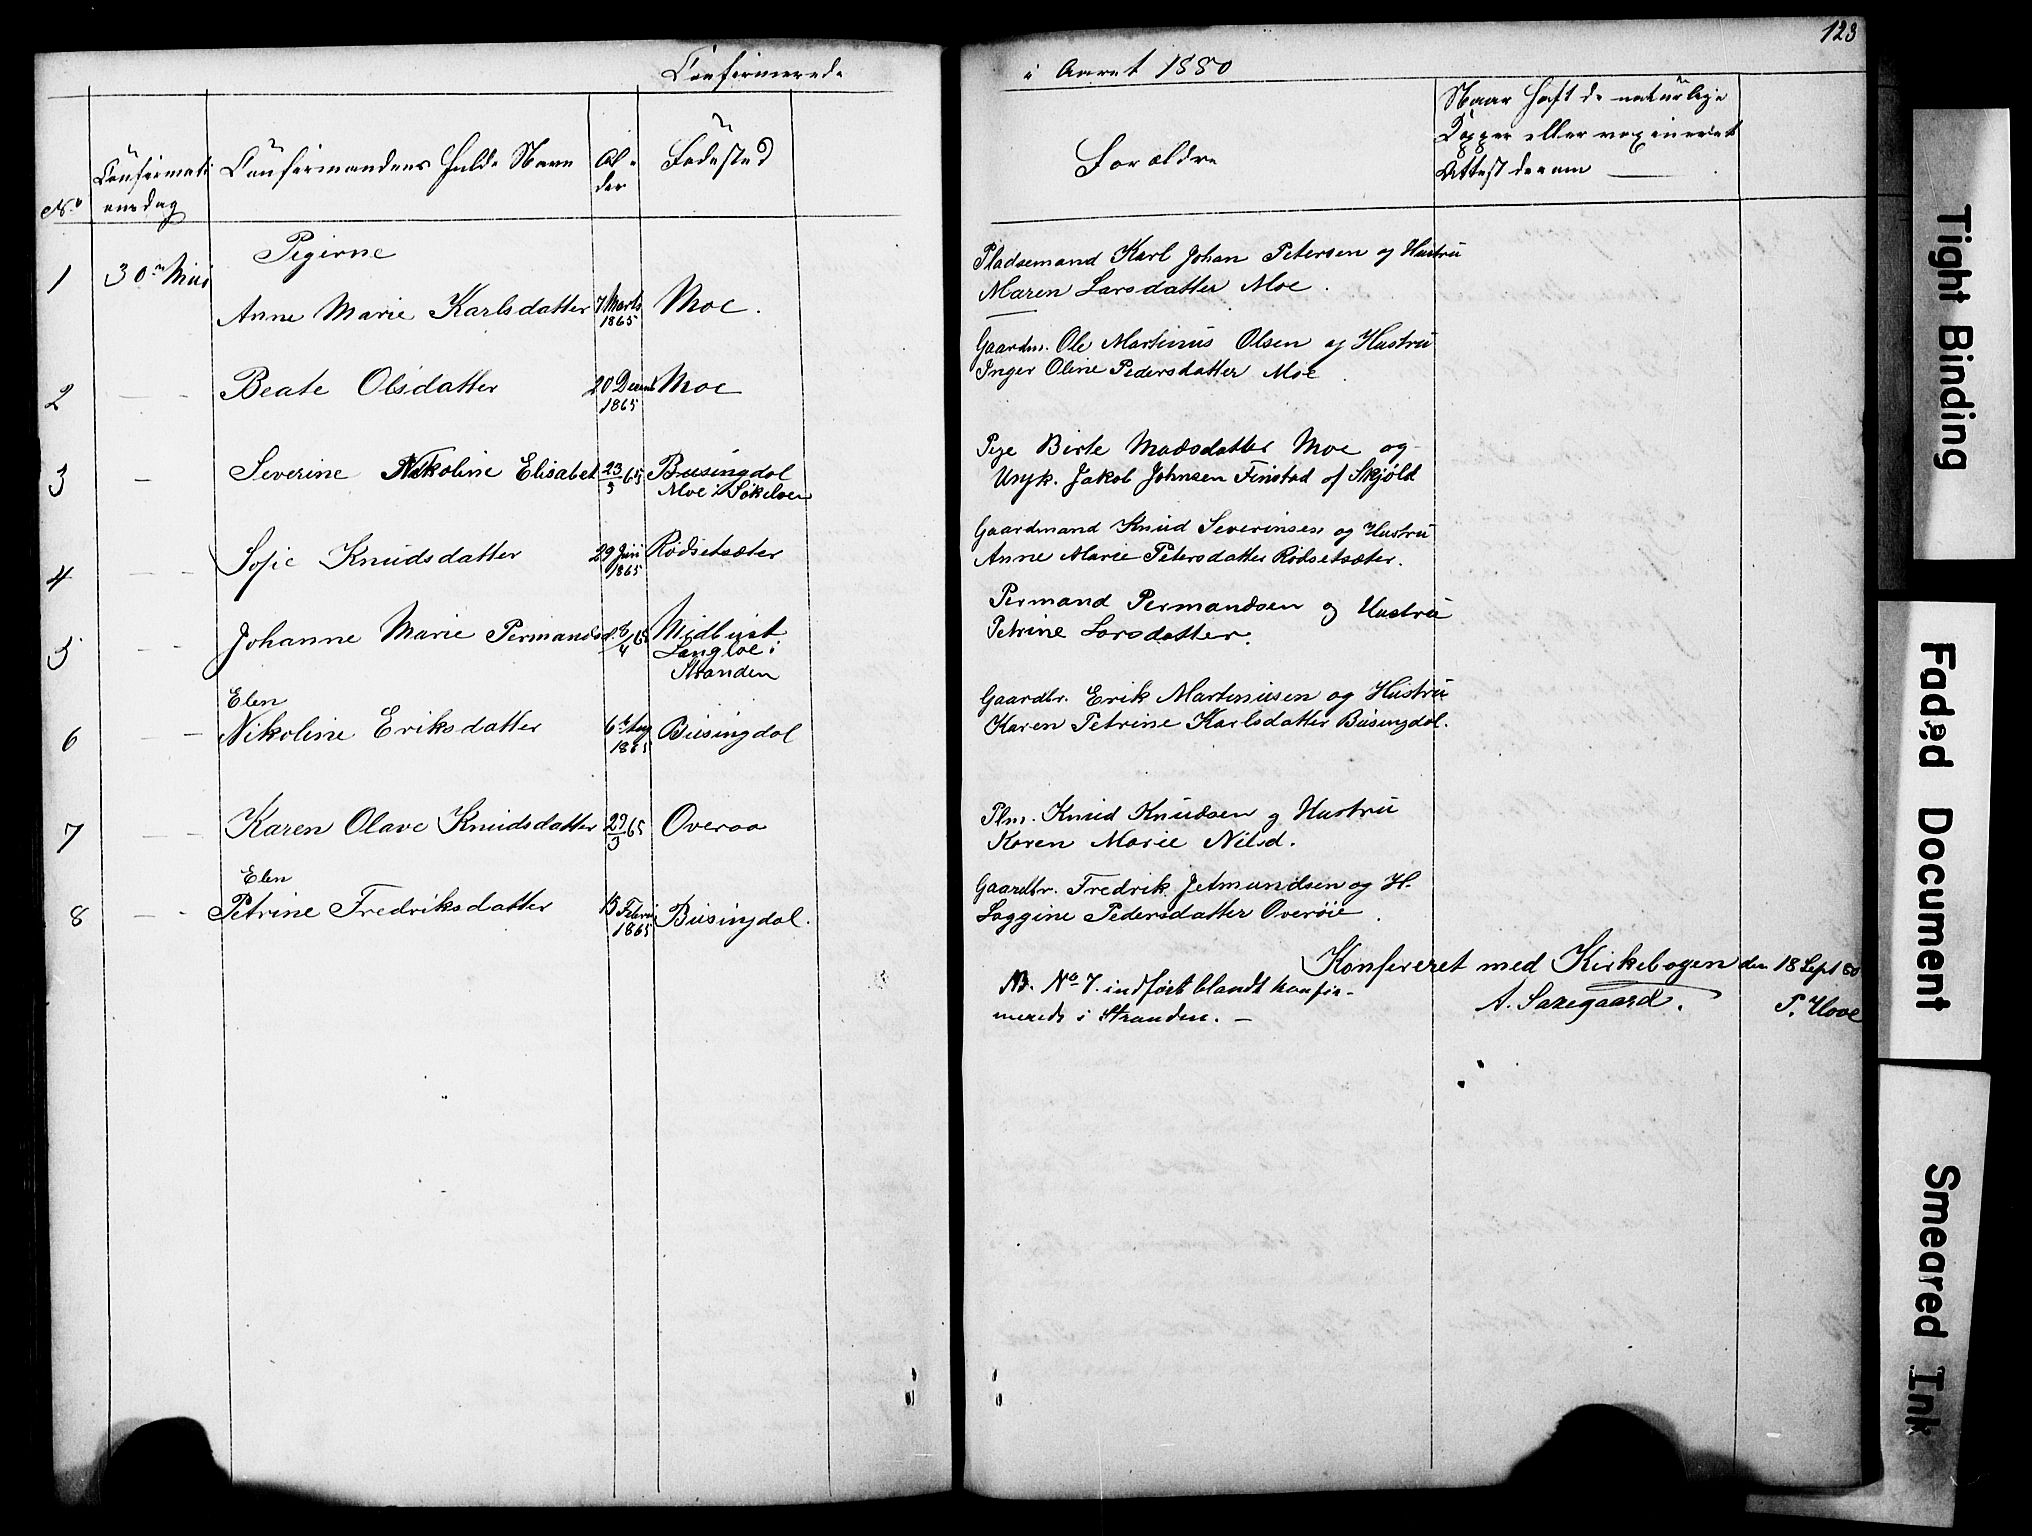 Confirmerede
i Aaret 1880
123
No
Confirmati
onsdag
Confirmandens fulde Navn
Al-
der
Fødested
Forældre
Naar haft de naturlige
Kopper eller vaxineret
Attest derom
Pigerne
1
30te Mai
Anne Marie Karlsdatter
7 Marts
1865
Moe.
Pladsemand Karl Johan Petersen og Hustru
Maren Larsdatter Moe.
2
Beate Olsdatter
20 Decmb
1865
Moe
Gaardm. Ole Martinus Olsen og Hustru
Inger Oline Pedersdatter Moe
3
Severine Nikoline Elisabet
23/5 65
Busingdal
Moe i Søkelven
Pige Birte Madsdatter Moe og
Ungk. Jakob Johnsen Finstad af Skjøld
4
Sofie Knudsdatter
29 Juii
1865
Rødsetsæter
Gaardmand Knud Severinsen og Hustru
Anne Marie Petersdatter Rødsetsæter.
5
Johanne Marie Permandsd.
8/4 65
Midbust
Langloe i
Stranden
Permand Permandsen og Hustru
Petrine Larsdatter.
6
Elen
Nikoline Eriksdatter
6te Aug
1865
Busingdal
Gaardbr. Erik Martinusen og Hustru
Karen Petrine Karlsdatter Busingdal.
7
Karen Olave Knudsdatter
29/3 65
Overaa
Plm. Knud Knudsen og Hustru
Karen Marie Nilsd.
8
Elen
Petrine Fredriksdatter
13 Febru
1865
Busingdal.
Gaardbr. Fredrik Jetmundsen og H.
Loggine Pedersdatter Overøie.
Konfereret med Kirkebogen den 18 Sept 80
NB. No 7. indført blandt konfir-
merede i Stranden. —
A. Saxegaard.
P. Hove
Tight Binding
Faded Document
Smeared Ink